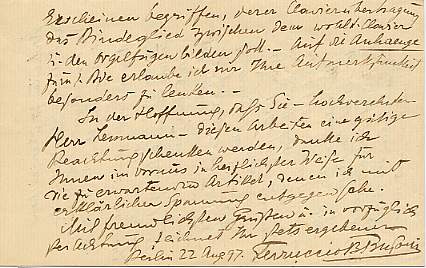 Erscheinen begriffen, deren Clavierübertragung
das Bindeglied zwischen dem wohlt. Clavier
u. den Orgelfugen bilden soll. – Auf die Anhaenge
zum I. erlaube ich mir Ihre Aufmerksamkeit
besonders zu lenken. –
In der Hoffnung, dass Sie – hochverehrter
Herr Lessmann – diesen Arbeiten eine gütige
Beachtung schenken werden, danke ich
Ihnen im voraus in herzlichster Weise für
die zu erwartenden Artikel, denen ich mit
erklärlicher Spannung entgegen sehe.
Mit freundlichsten Grüssen u. in vorzüglich
ster Achtung, zeichnet Ihr stets ergebener
Berlin 22 Aug 97. Ferruccio B. Busoni